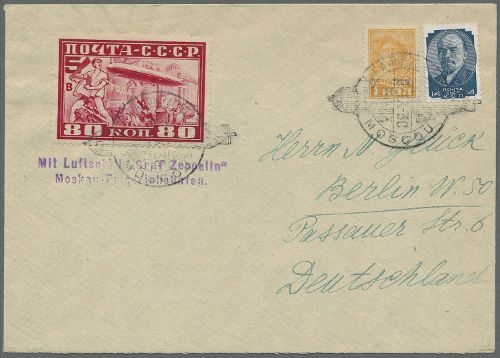 ПОЧТА-С.С.С.Р
5
В
ГОДА
80 КОП. 80
1 КОП.
ПОЧТА
14 КОП 14
Mit Luftschiff "Graf Zeppelin"
Moskau-Friedrichshafen.
Herrn N. Glück
Berlin W. 50
Passauer Str. 6
Deutschland